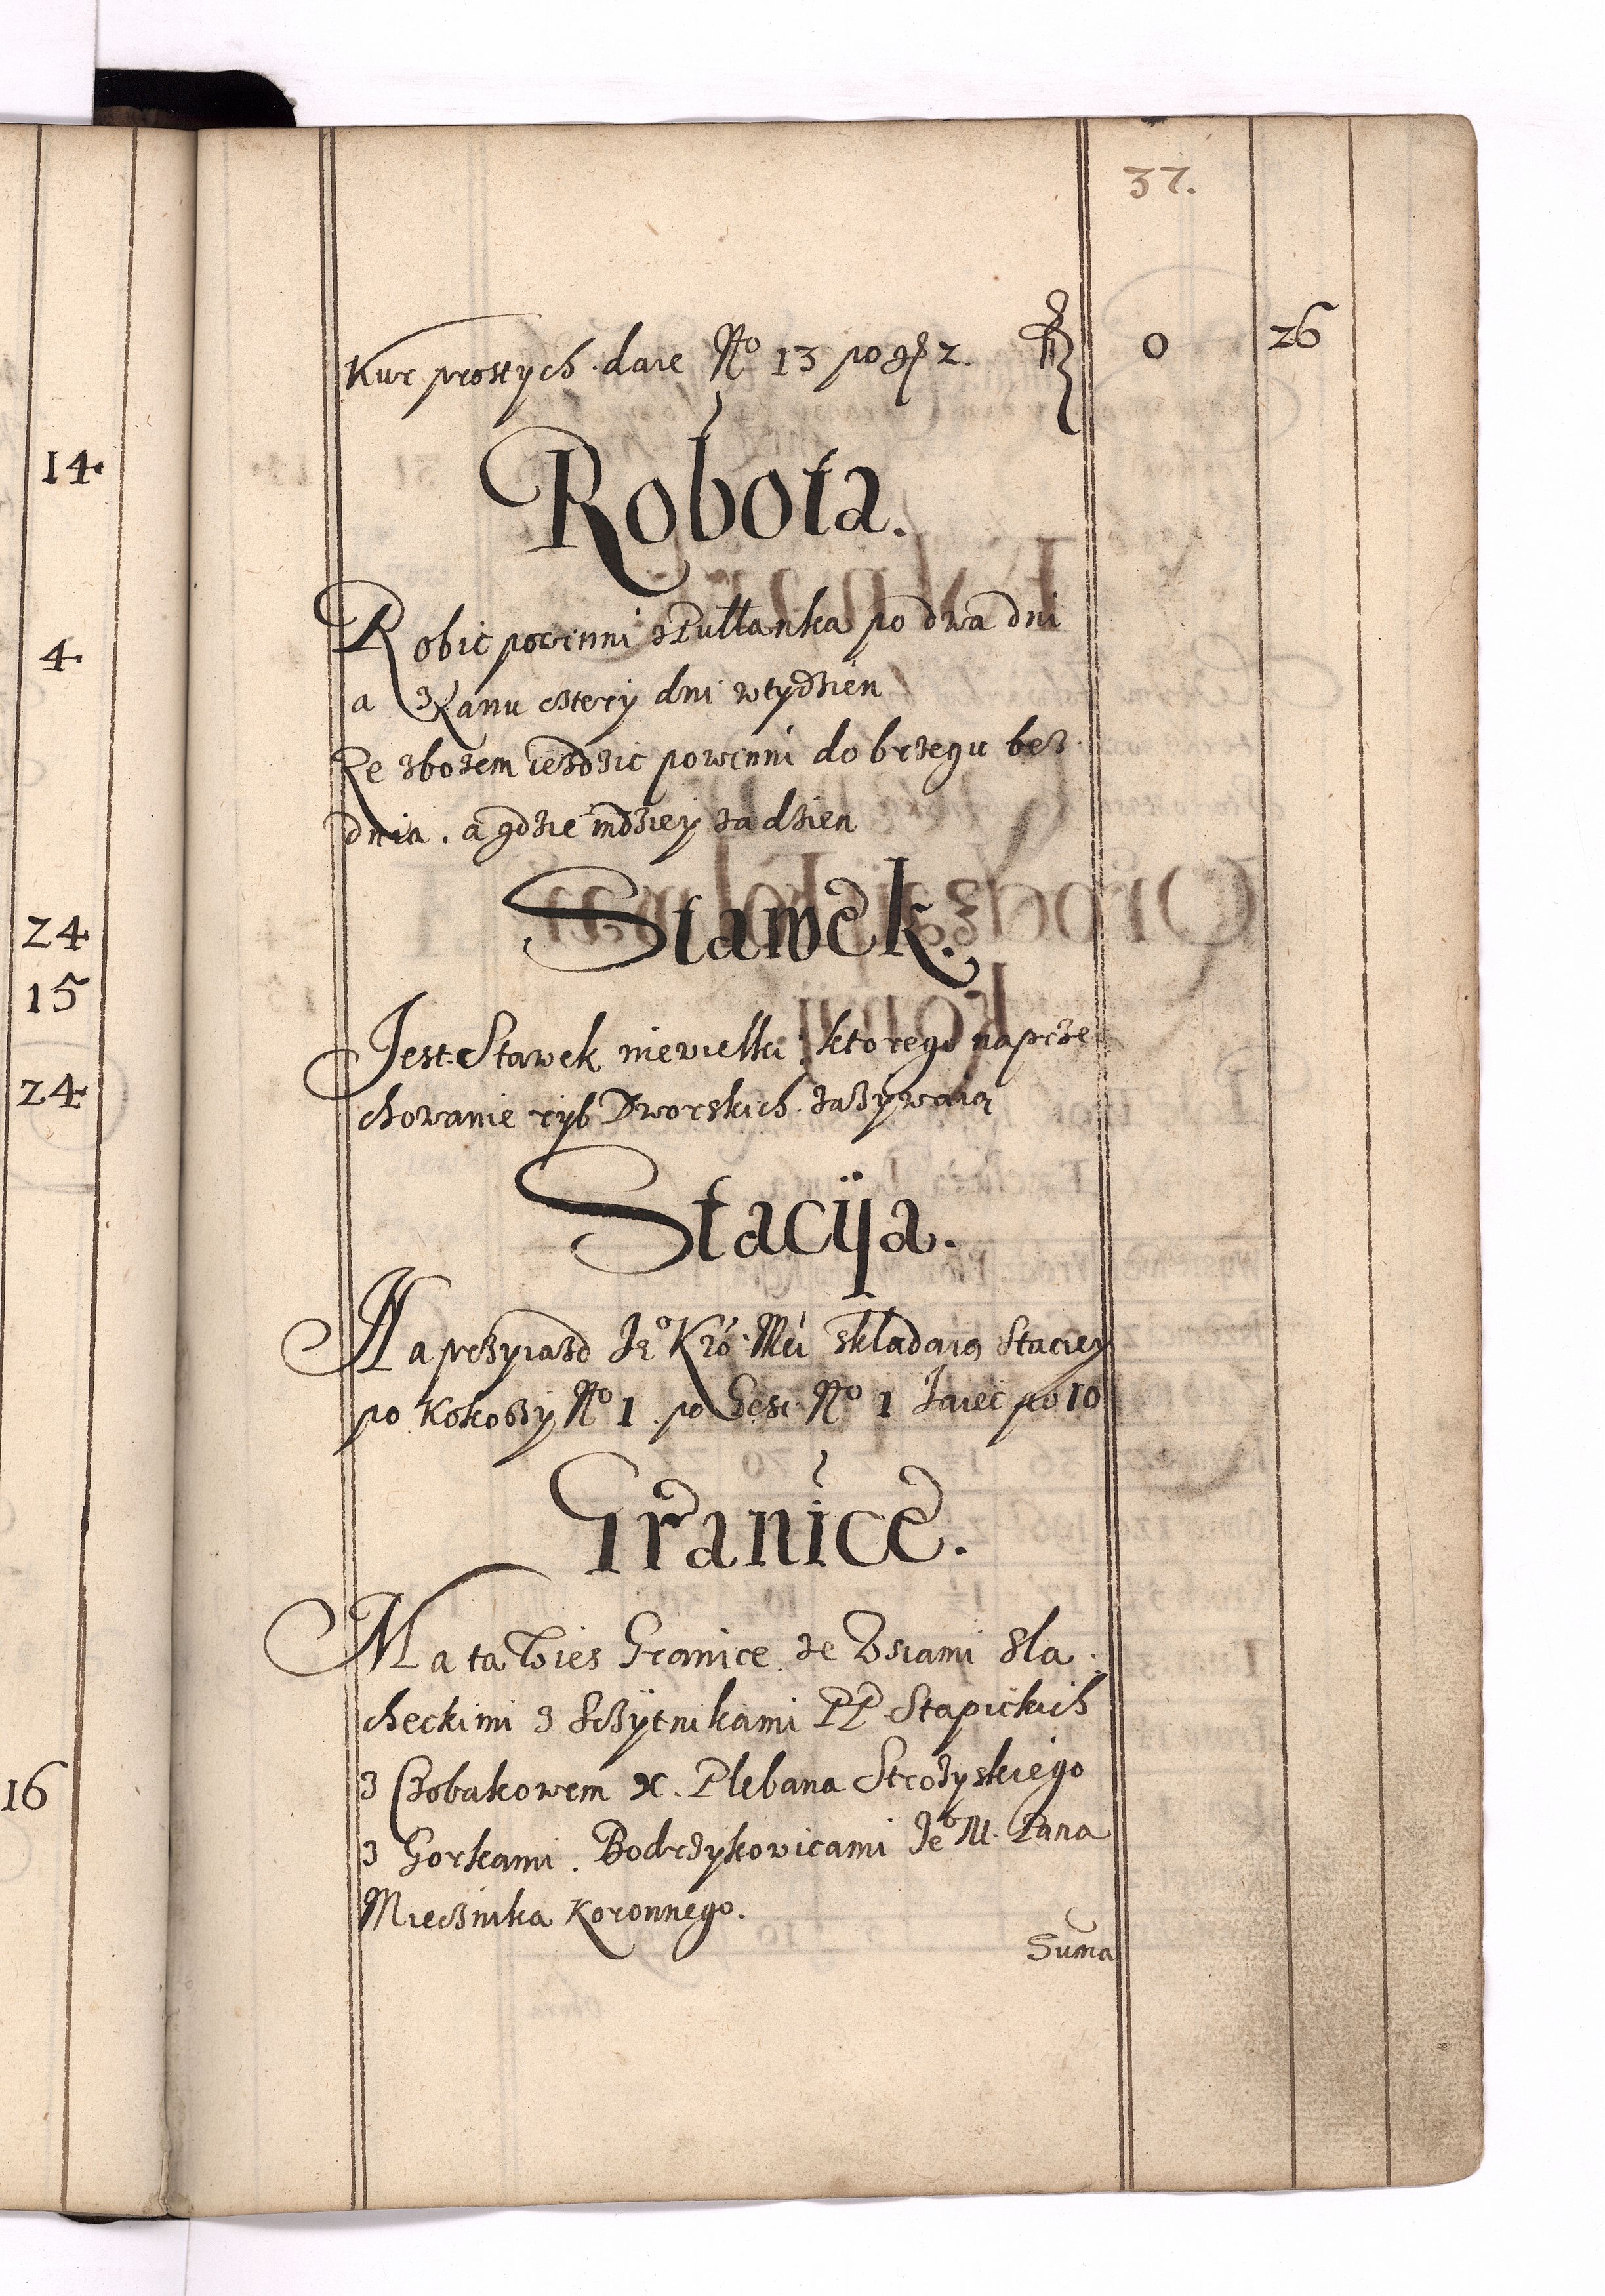 37.
Kur prostych daie No 13 po g 2. f 0 26
Robota.
Robic powinni z Pułłanka po dwa dni
a z Łanu cztery dni w tydzien
Ze zbozem iezdzic powinni do brzegu bez
dnia. a gdzie indziey za dzien
Stawek.
Jest Stawek niewielki ktorego na prze
chowanie ryb Dworskich zazywaią
Stacÿa.
Na przyiazd Je° Kró: Mći składaią Stacey
po Kokoszy No 1. po Gęsi No 1 Jaiec po 10
Granice.
Ma ta Wies Granice ze Wsiami Sla
checkimi z Sczÿtnikami PP Stapickich
z Czobakowem X. Plebana Strozyskiego
z Gorkami. Bodrzykowicami Je° M. Pana
Miecznika Koronnego.
Suma
14
4
24
15
24
16